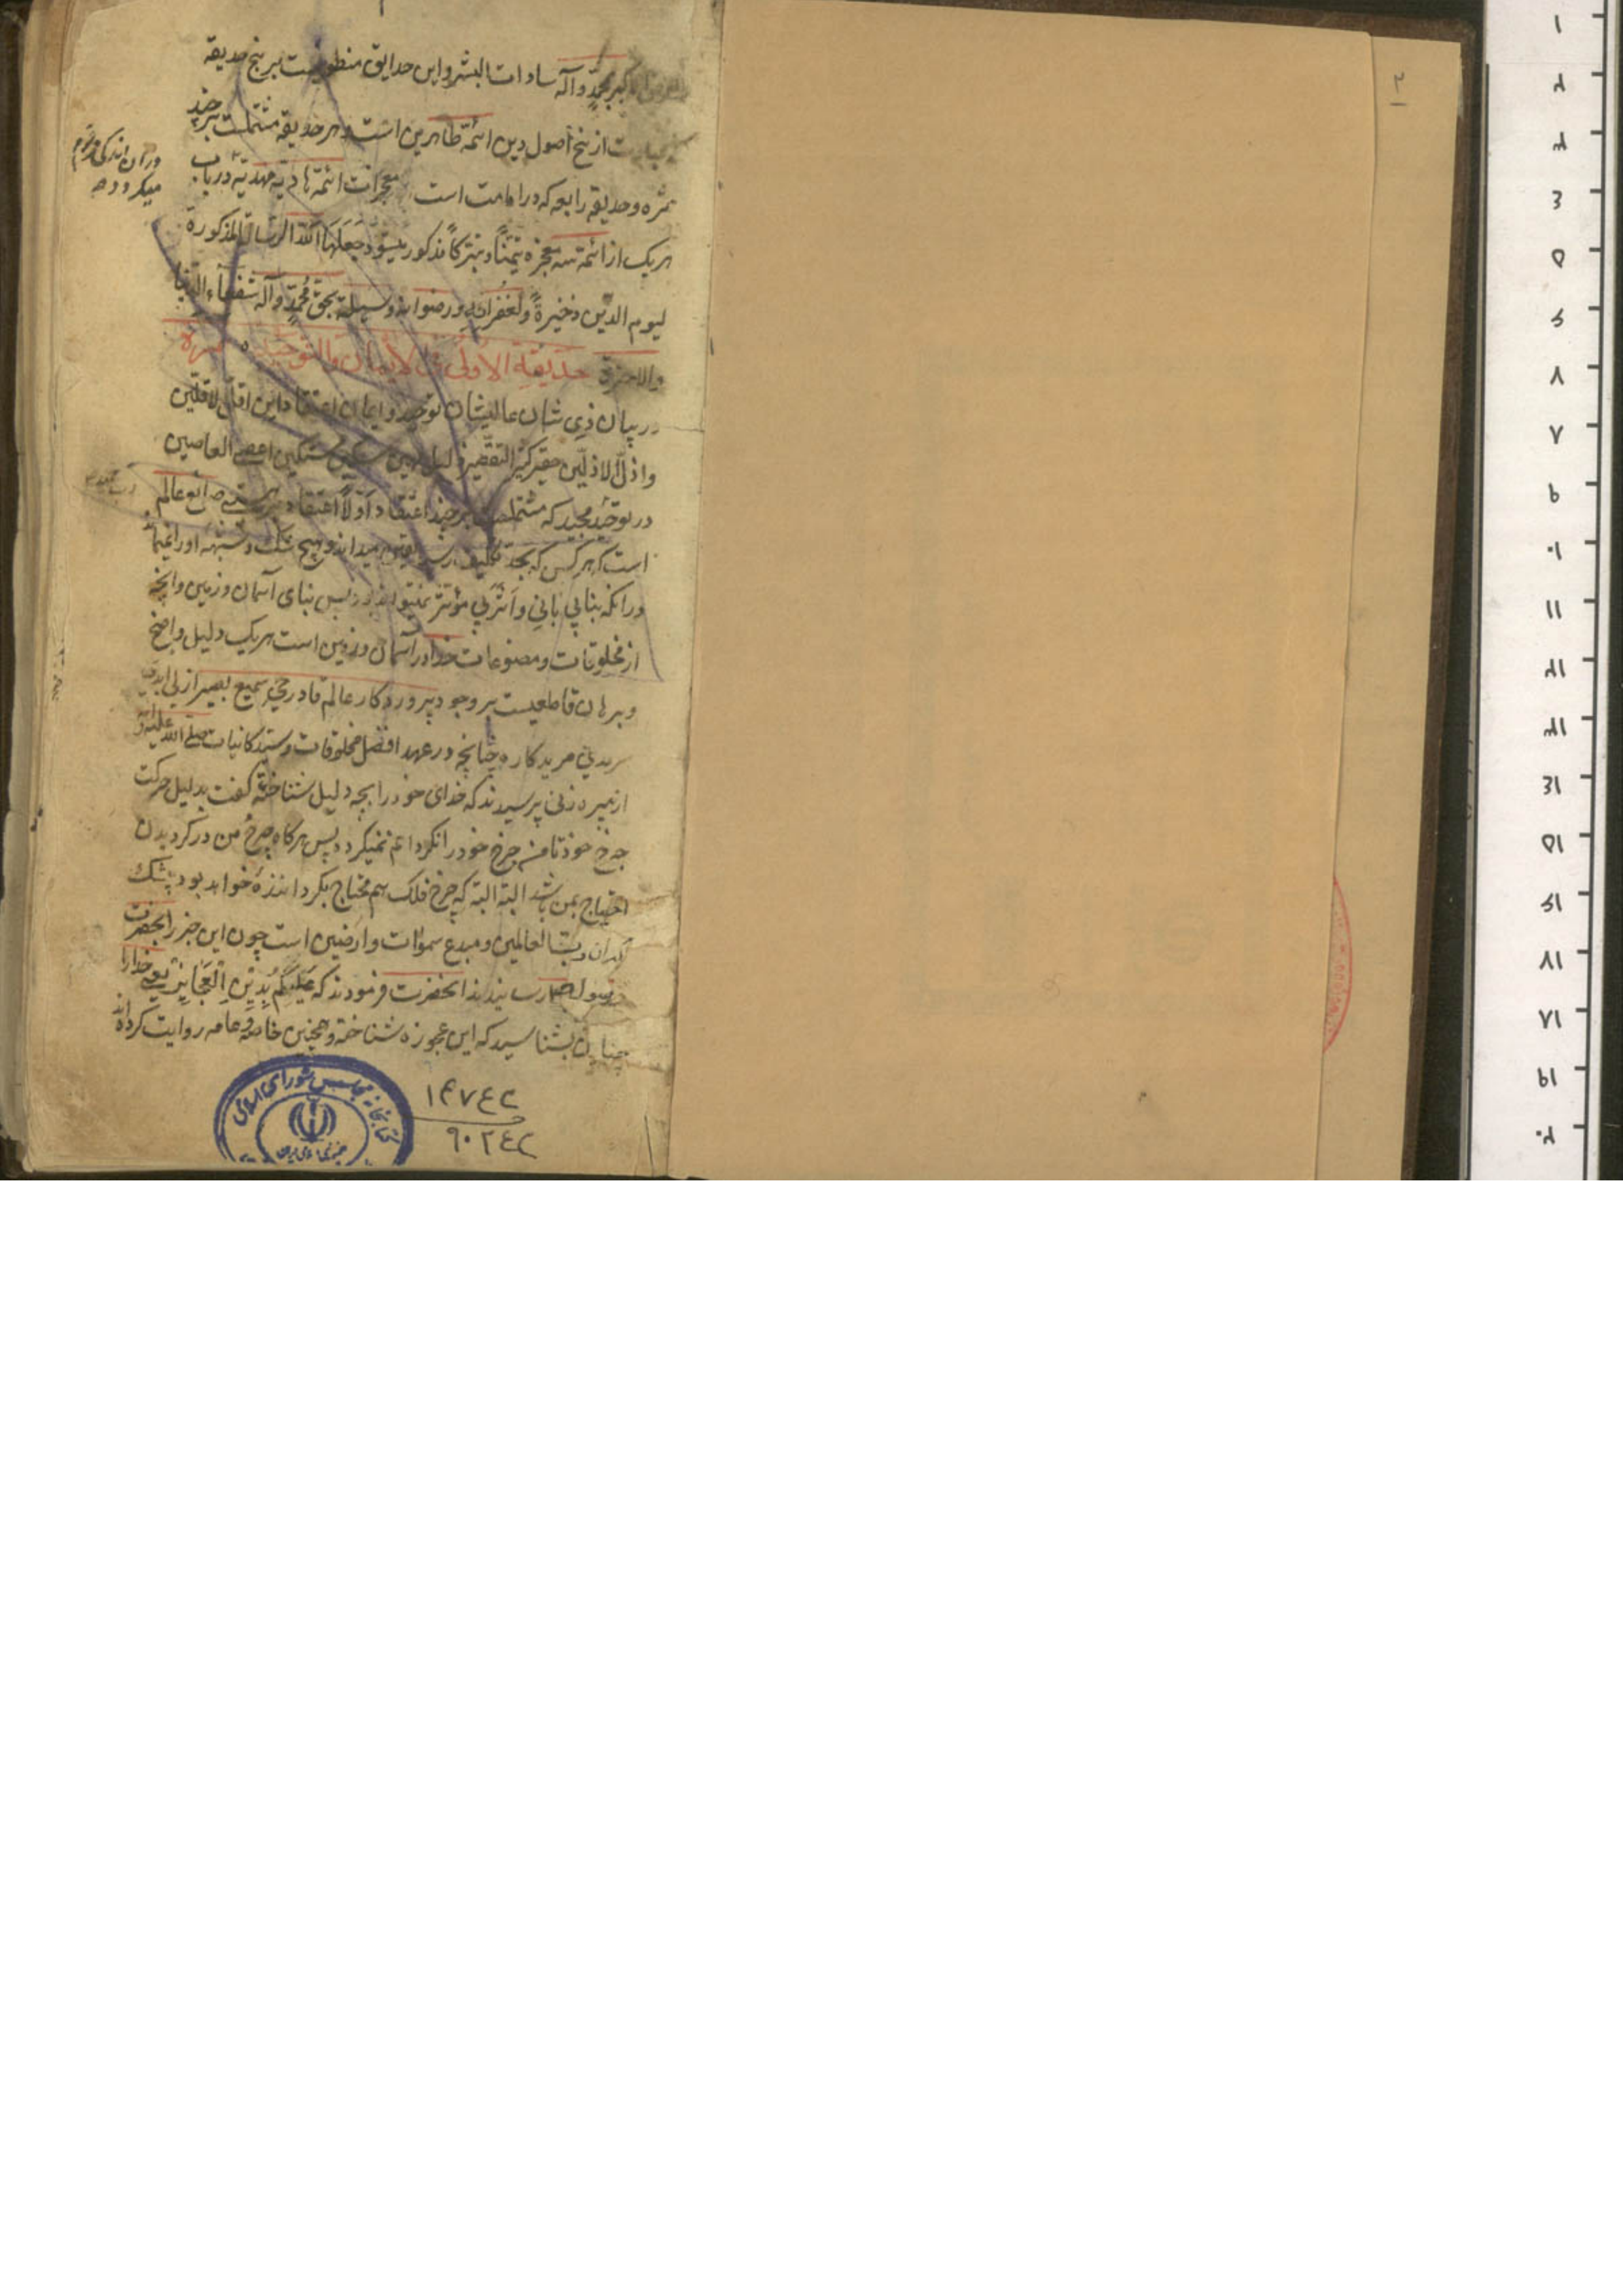 اکبر محمّدٍ وآله سادات البشر و این حدایق منطویست بر پنج حدیقه
از پنج اصول دین ائمّه طاهرین است و هر حدیقه مشتملست بر چند
ثمره وحدیقه رابعه که در امامت است معجزات ائمّه هادیه مهدیّه در باب
هریک از ائمّه سه معجزه تیمّناً و تبرّکاً مذکور میشود جَعَلَهَا اللّه الرسالة المذکورة
لیوم الدّین ذخیرةً ولغفرانه ورضوانه وسیلة بحقّ مُحمّدٍ وآله شفعاء الدّنیا
والاخرة حَدیقة الاُولٰی فی الایمان والتّوحید ثمره
در بیان ذی شان عالیشان توحید و ایمان اعتقاد این اقلّ الاقلّین
واذلّ الاذلّین حقیر کثیر التقصیر ذلیل مسکین مستکین اعصی العاصین
در توحید مجید که مشتملست بر چند اعتقاد اوّلاً اعتقاد بهستی صانع عالم
است که هر کس که بحدّ تکلیف رسد یقین میداند و هیچ شکّ و شبهه او را نیست
در آنکه بنا بی بانی و اَثَر بی مؤثّر نمیتواند بود پس بنای آسمان و زمین و آنچه
از مخلوقات و مصنوعات خدا در آسمان و زمین است هریک دلیل واضح
وبرهان قاطعیست بر وجود پروردگار عالم قادر حیّ سمیع بصیر ازلی ابدی
سرمدی مرید کاره چنانچه در عهد افضل مخلوقات و سیّد کاینات صلّی اللّه علیه وآله
از پیره زنی پرسیدند که خدای خود را بچه دلیل شناختهٔ گفت بدلیل حرکت
چرخ خود تا من چرخ خود را نگردانم نمیگردد پس هرگاه چرخ من در گردیدن
احتیاج بمن باشد البتّه البتّه که چرخ فلک هم محتاج بگردانندهٔ خواهد بود بیشک
که آن ربّ العالمین و مبدع سموات و ارضین است چون این خبر را بحضرت
رسول ص رسانیدند آنحضرت فرمودند که عَلَیْکُم بِدِیْنِ الْعَجَایِزِ یعنی خدا را
چنان بشناسید که این عجوزه شناخته و همچنین خاصه و عامه روایت کرده‌اند
در آن اندکی
میگردد
کتابخانه مجلس شورای اسلامی
۱۴۷۴۲
۹۰۲۴۲
۲
۱
۲
۳
۴
۵
۶
۷
۸
۹
۱۰
۱۱
۱۲
۱۳
۱۴
۱۵
۱۶
۱۷
۱۸
۱۹
۲۰